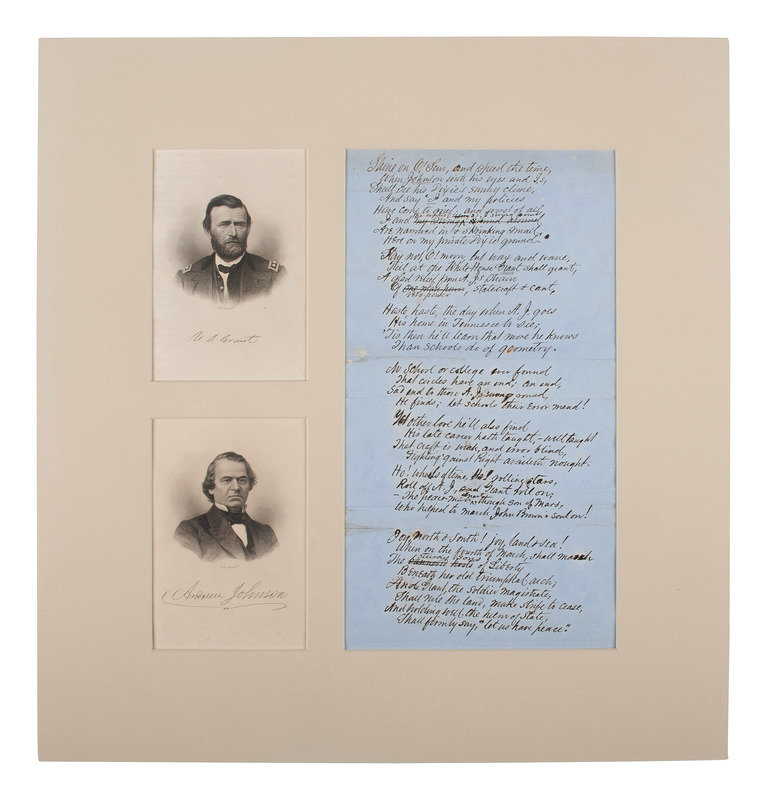 U. S. Grant
Andrew Johnson
Shine on O! Sun, and speed the time,
When Johnson with his eyes and Is,
Shall see his Dixie's sunny clime,
And say "I and my policies
Have come to grief, and
I and
Are narrowed in & shrinking small,
Here on my private Dixie ground."
Stay not, O! moon, but wax and wane,
Till at the White House Grant shall grant,
A glad relief from A. J.'s strain
Of statecraft & cant,
Haste, haste, the day when A. J. goes
His home in Tennessee to see,
'Tis then he'll learn that more he knows
Than schools do of geometry.
No school or college ever found
That circles have an end; an end,
Sad end to those A. J. swung around,
He finds; let schools their error mend!
Yet other lore he'll also find
His late career hath taught, – well taught
That craft is weak, and error blind,
Fighting 'gainst Right availeth nought.
Ho! wheels of time, Ho! rolling stars,
Roll off A. J., and Grant roll on;
– The peace-man though son of Mars,
Who helped to march John Brown's soul on!
Joy, north & South! Joy, land & sea!
When on the fourth of March, shall march
The sturdy hosts of Liberty
Beneath her old triumphal arch;
And Grant, the soldier magistrate,
Shall rule the land, make strife to cease,
And holding well the helm of State,
Shall firmly say, "Let us have peace."